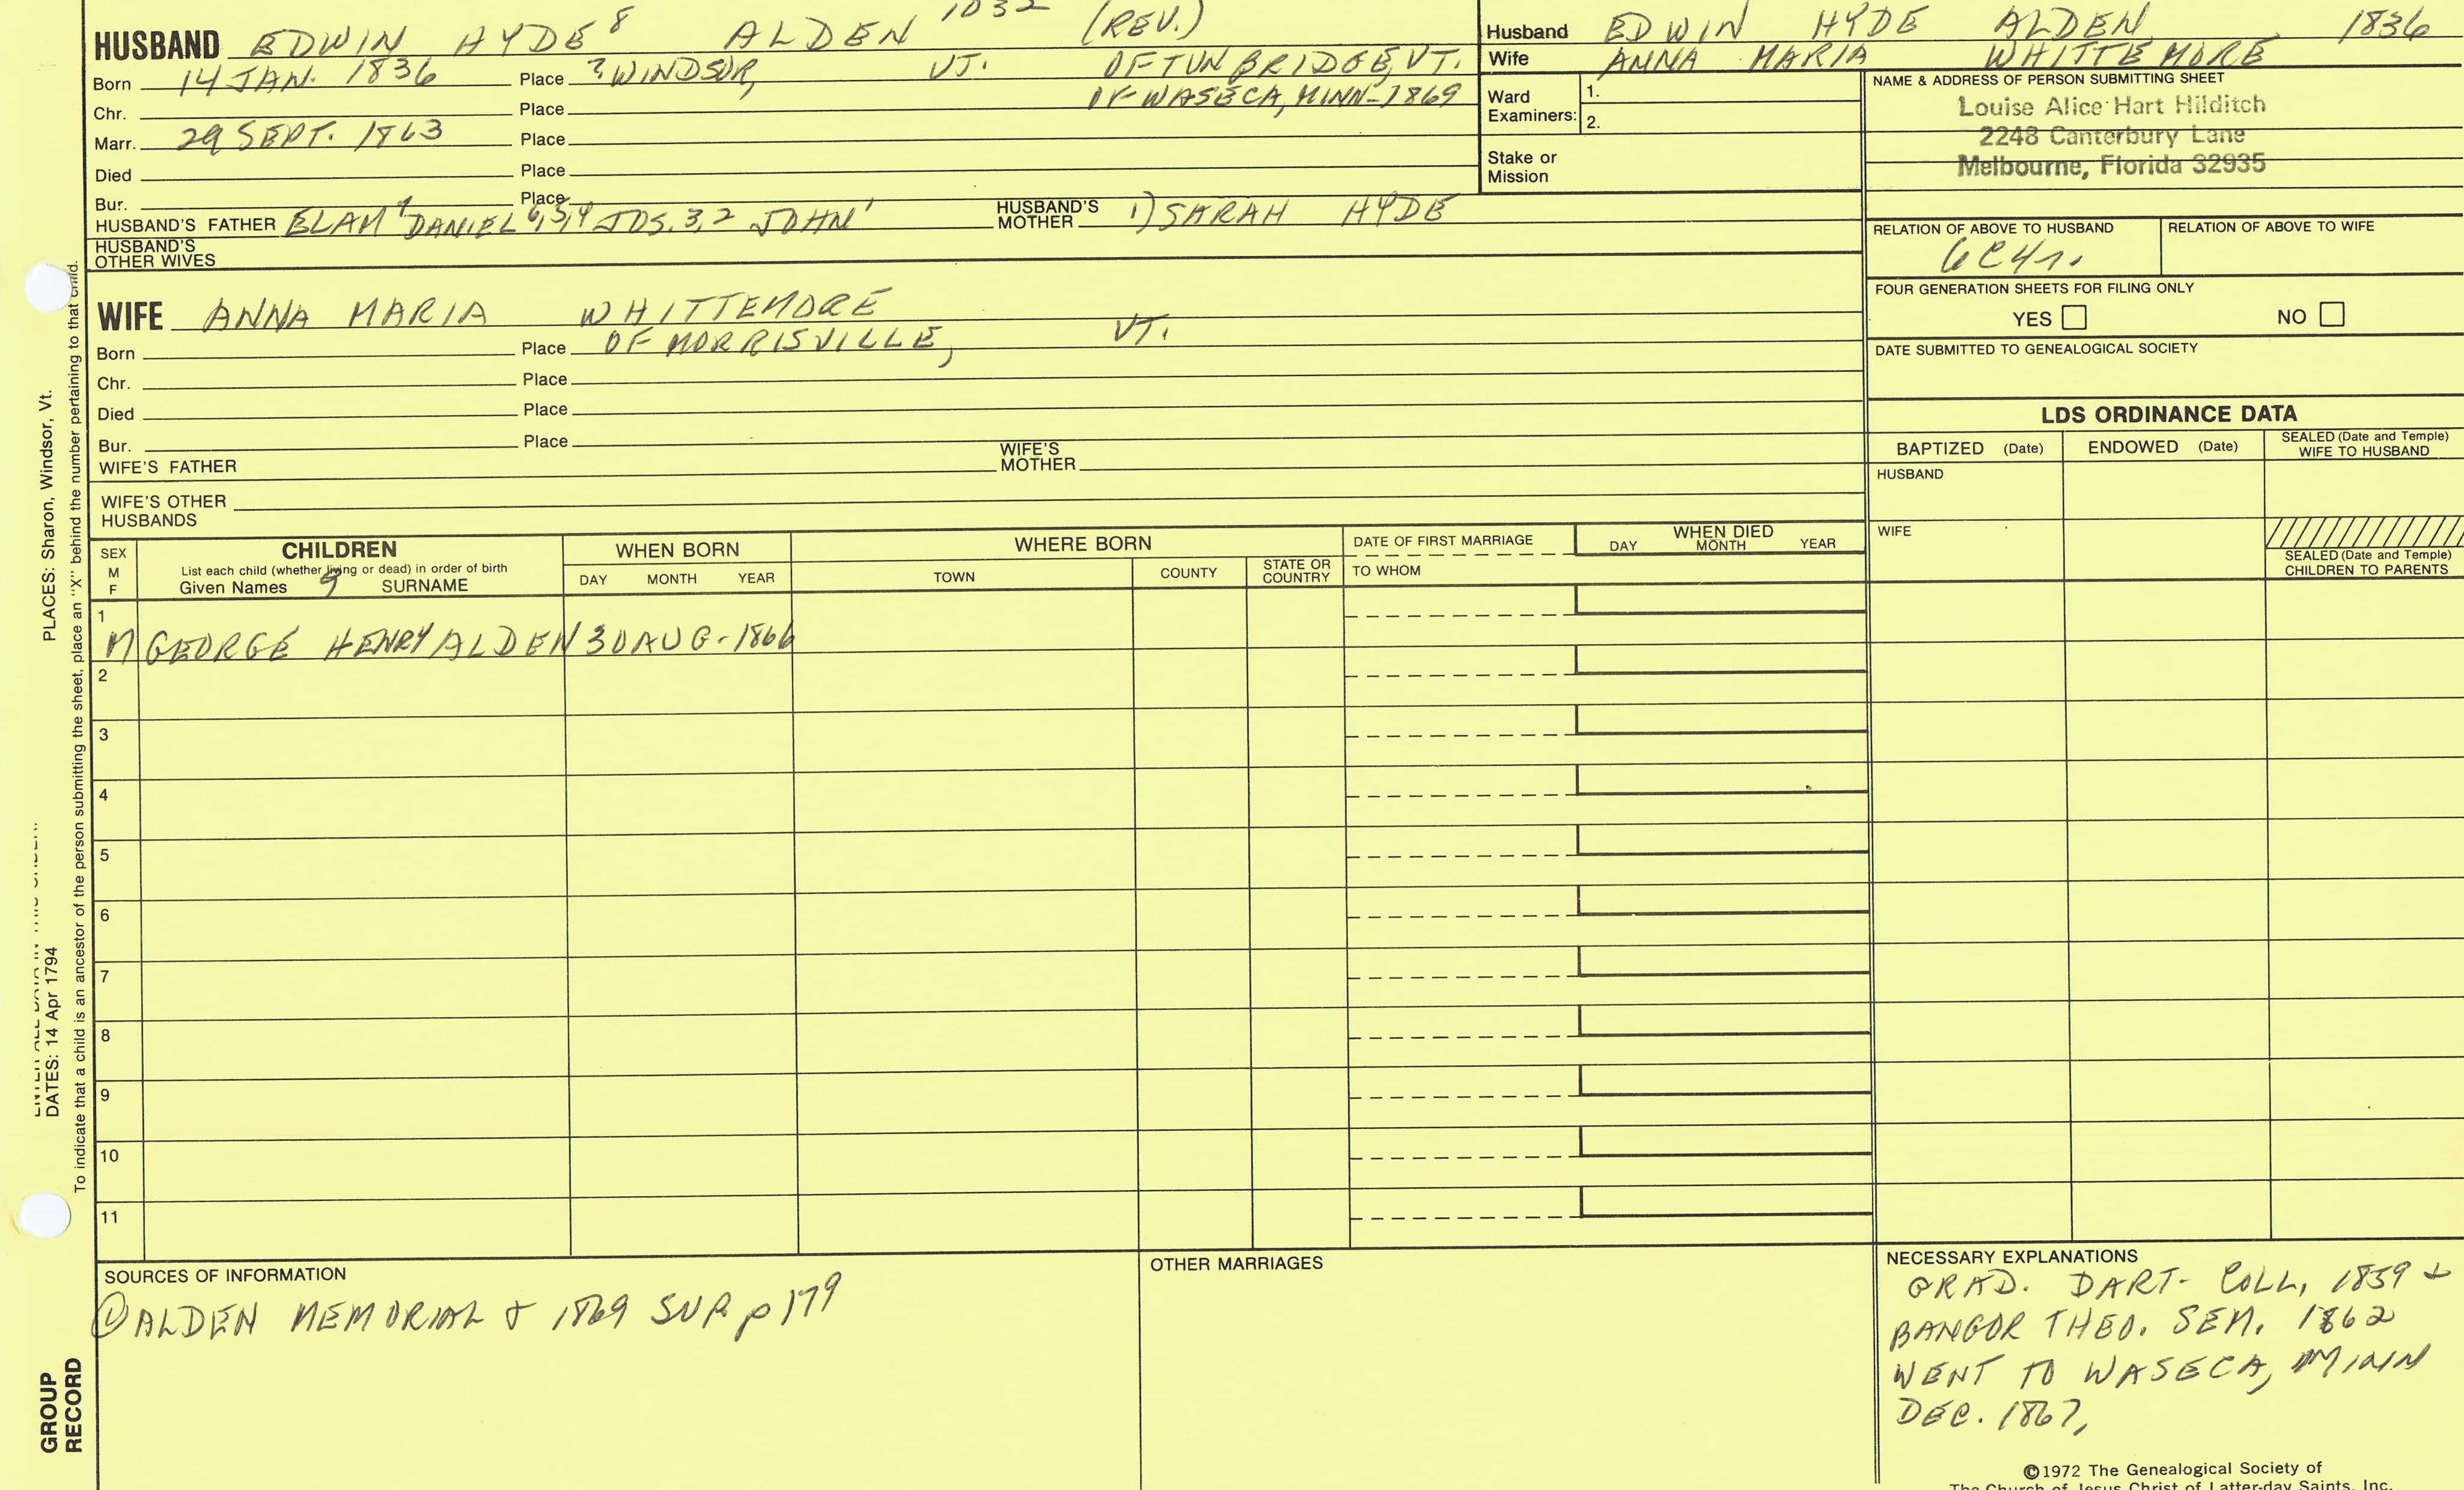 HUSBAND EDWIN HYDE 8 ALDEN 1032 (REV.)
Born 14 JAN. 1836 Place ? WINDSOR, VT. OF TUNBRIDGE, VT.
OF WASECA, MINN-1869
Chr. Place
Marr. 29 SEPT. 1863 Place
Died Place
Bur. Place
HUSBAND'S FATHER ELAM 7 DANIEL 6,5,4 JOS. 3,2 JOHN 1 HUSBAND'S MOTHER 1) SARAH HYDE
HUSBAND'S OTHER WIVES
Husband EDWIN HYDE ALDEN 1836
Wife ANNA MARIA WHITTEMORE
Ward Examiners: 1.
2.
Stake or Mission
NAME & ADDRESS OF PERSON SUBMITTING SHEET
Louise Alice Hart Hilditch
2248 Canterbury Lane
Melbourne, Florida 32935
RELATION OF ABOVE TO HUSBAND RELATION OF ABOVE TO WIFE
6C4r.
FOUR GENERATION SHEETS FOR FILING ONLY
YES NO
DATE SUBMITTED TO GENEALOGICAL SOCIETY
WIFE ANNA MARIA WHITTEMORE
Born Place OF MORRISVILLE, VT.
Chr. Place
Died Place
Bur. Place
WIFE'S FATHER WIFE'S MOTHER
WIFE'S OTHER HUSBANDS
LDS ORDINANCE DATA
BAPTIZED (Date) ENDOWED (Date) SEALED (Date and Temple) WIFE TO HUSBAND
HUSBAND
WIFE
SEALED (Date and Temple) CHILDREN TO PARENTS
SEX M F
CHILDREN
List each child (whether living or dead) in order of birth
Given Names 9 SURNAME
WHEN BORN
DAY MONTH YEAR
WHERE BORN
TOWN COUNTY STATE OR COUNTRY
DATE OF FIRST MARRIAGE
TO WHOM
WHEN DIED
DAY MONTH YEAR
1
M GEORGE HENRY ALDEN 30 AUG-1866
2
3
4
5
6
7
8
9
10
11
SOURCES OF INFORMATION
① ALDEN MEMORIAL & 1869 SUP. p 179
OTHER MARRIAGES
NECESSARY EXPLANATIONS
GRAD. DART- COLL, 1859 +
BANGOR THEO. SEM. 1862
WENT TO WASECA, MINN
DEC. 1867,
©1972 The Genealogical Society of
The Church of Jesus Christ of Latter-day Saints, Inc.
PLACES: Sharon, Windsor, Vt.
DATES: 14 Apr 1794
To indicate that a child is an ancestor of the person submitting the sheet, place an "X" behind the number pertaining to that child.
GROUP
RECORD